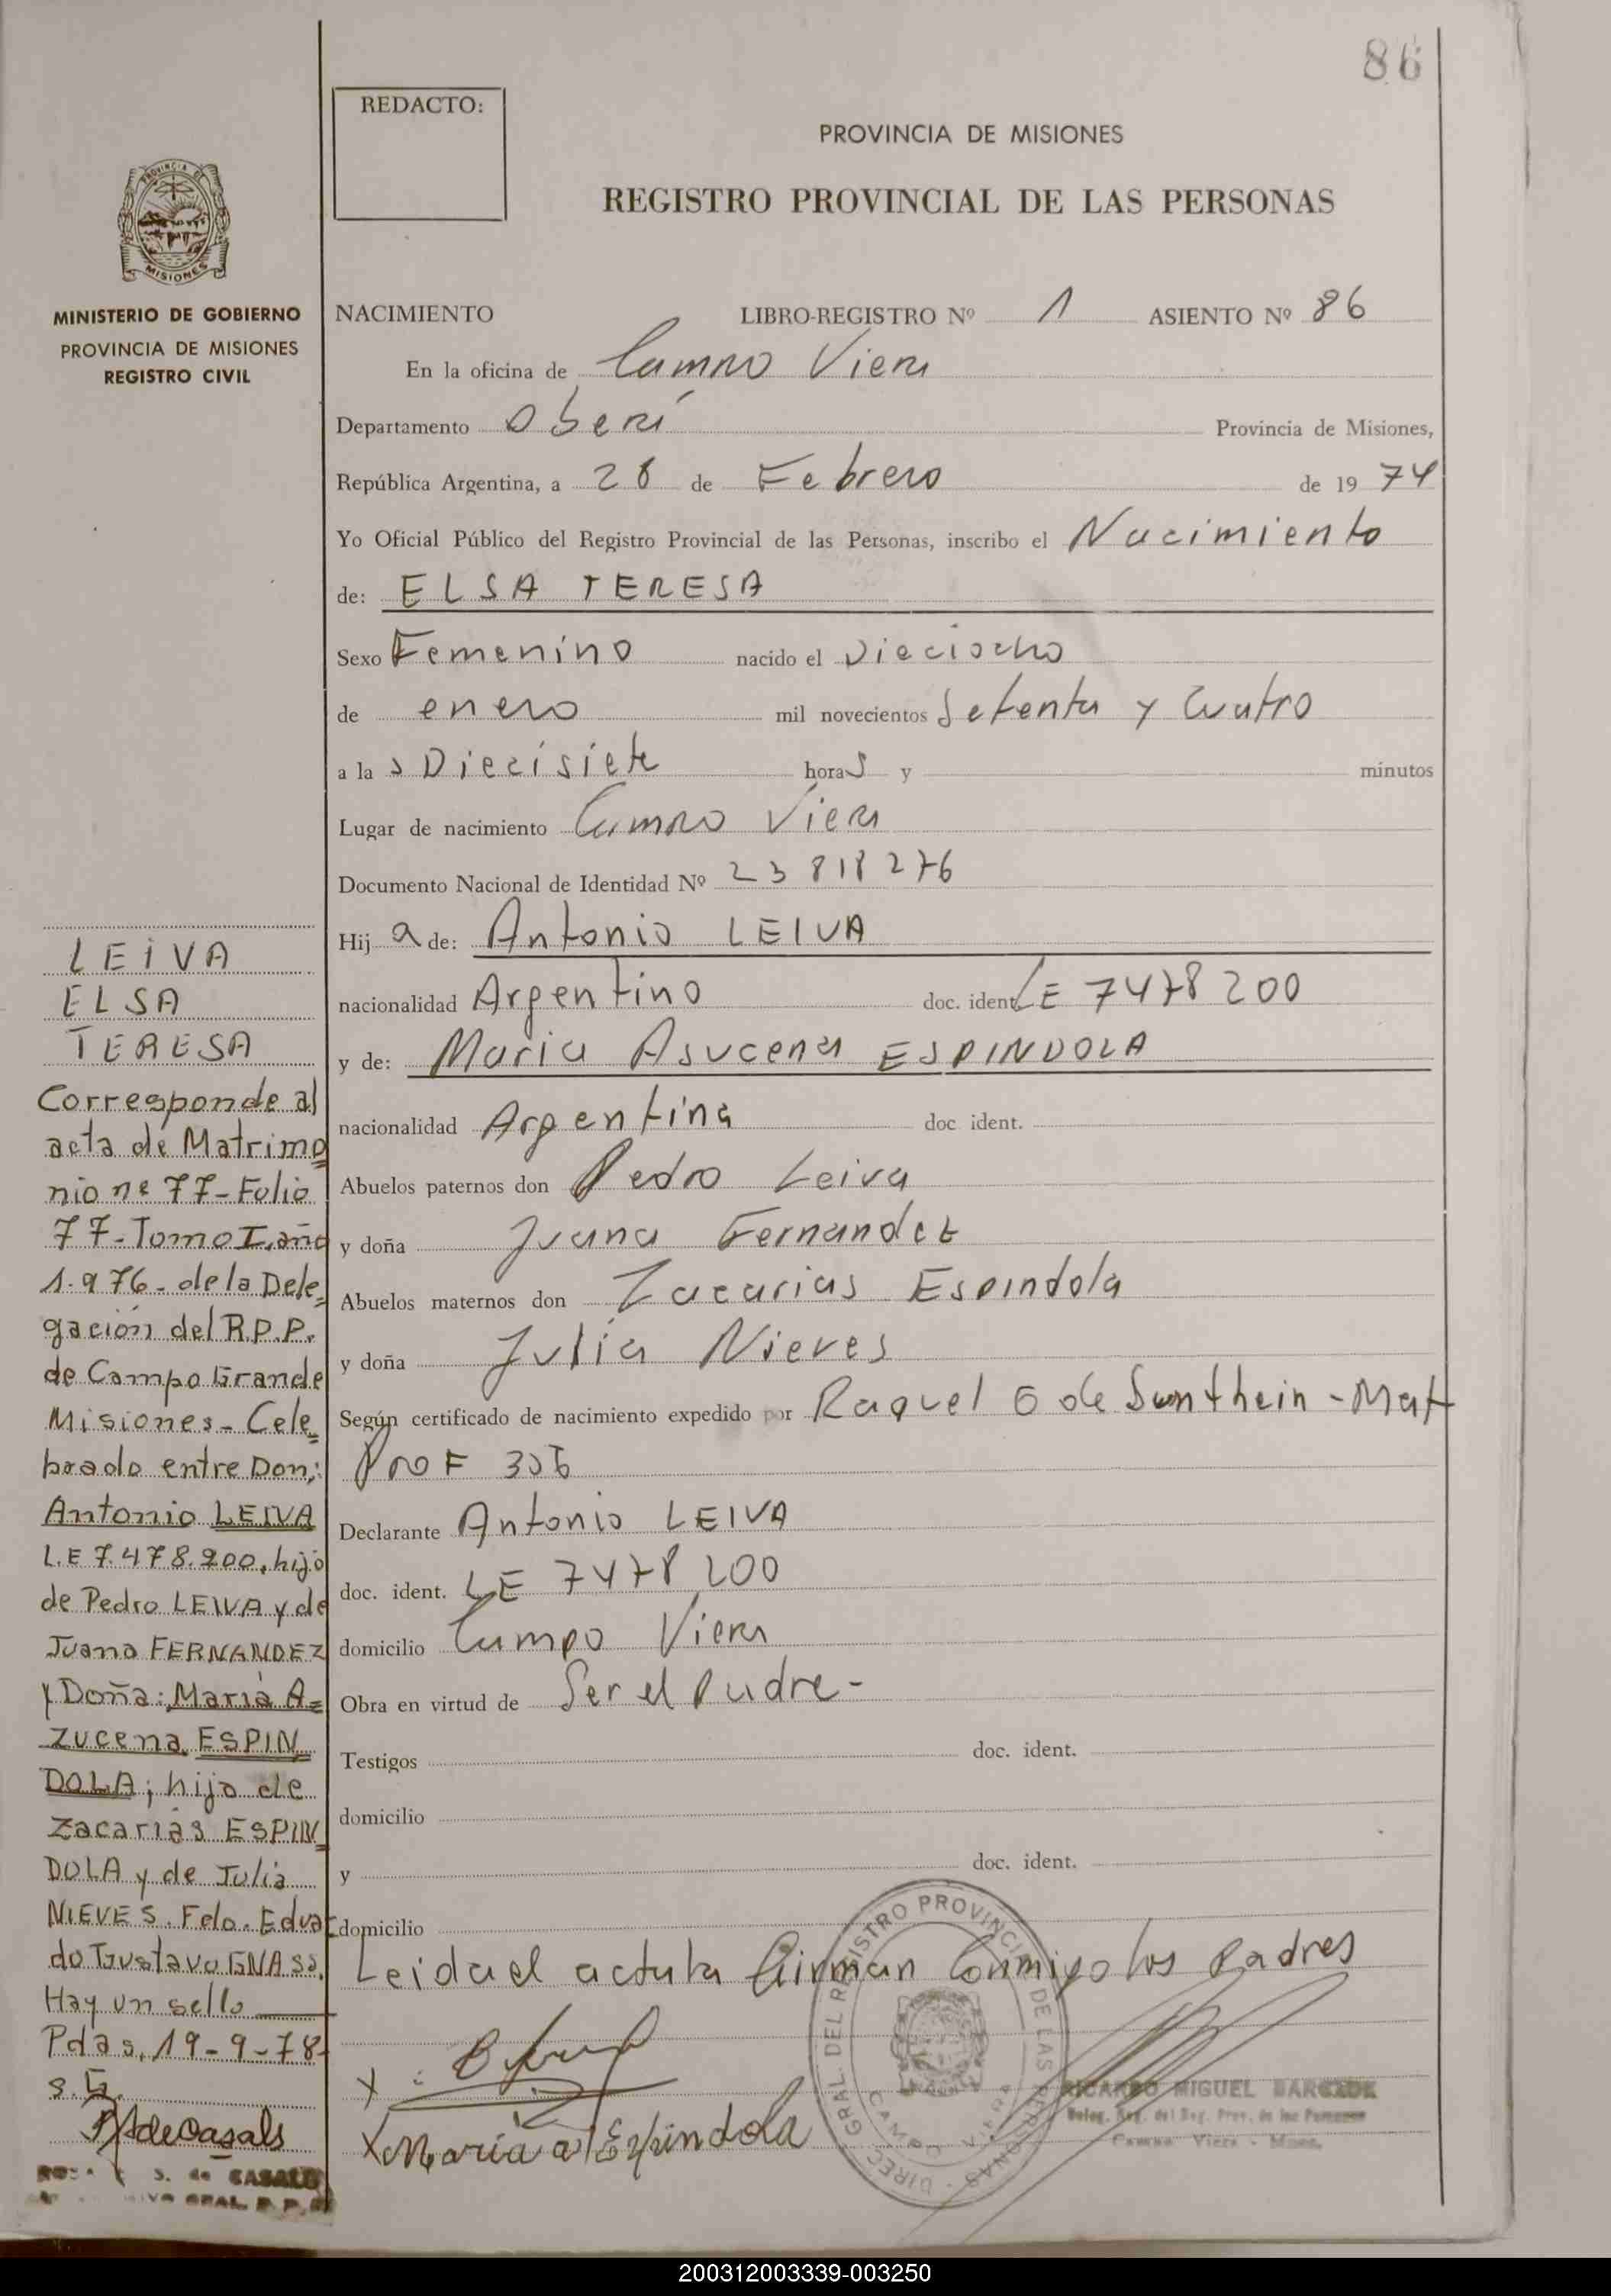 86
REDACTO:
PROVINCIA DE MISIONES
REGISTRO PROVINCIAL DE LAS PERSONAS
PROVINCIA DE
MISIONES
MINISTERIO DE GOBIERNO
PROVINCIA DE MISIONES
REGISTRO CIVIL
NACIMIENTO LIBRO-REGISTRO Nº 1 ASIENTO Nº 86
En la oficina de Campo Viera
Departamento Oberá Provincia de Misiones,
República Argentina, a 28 de Febrero de 19 74
Yo Oficial Público del Registro Provincial de las Personas, inscribo el Nacimiento
de: ELSA TERESA
Sexo Femenino nacido el Dieciocho
de enero mil novecientos Setenta y Cuatro
a la s Diecisiete horas y minutos
Lugar de nacimiento Campo Viera
Documento Nacional de Identidad Nº 23 818 276
Hija de: Antonio LEIVA
nacionalidad Argentino doc. ident. LE 7478 200
y de: Maria Asucena ESPINDOLA
nacionalidad Argentina doc ident.
Abuelos paternos don Pedro Leiva
y doña Juana Fernandez
Abuelos maternos don Zacarias Espindola
y doña Julia Nieves
Según certificado de nacimiento expedido por Raquel G de Sunthein - Mat
Prof 306
Declarante Antonio LEIVA
doc. ident. LE 7478 200
domicilio Campo Viera
Obra en virtud de Ser el Padre-
Testigos doc. ident.
domicilio
y doc. ident.
domicilio
Leida el acta la firman Conmigo los Padres
X
X Maria a Espindola
DIREC. GRAL. DEL REGISTRO PROVINCIAL DE LAS PERSONAS
CAMPO VIERA
RICARDO MIGUEL BARGADE
Deleg. Reg. del Reg. Prov. de las Personas
Campo Viera - Mnes.
LEIVA
ELSA
TERESA
Corresponde al
acta de Matrimo
nio nº 77-Folio
77-Tomo I, año
1.976- de la Dele
gación del R.P.P.
de Campo Grande
Misiones- Cele
brado entre Don:
Antonio LEIVA
L.E 7.478.200, hijo
de Pedro LEIVA y de
Juana FERNANDEZ
y Doña: María A=
zucena ESPIN
DOLA; hija de
Zacarías ESPIN
DOLA y de Julia
NIEVES. Fdo. Eduar
do Gustavo GNASS.
Hay un sello
Pdas, 19-9-78-
s.G.
de Casals
S. de CASALS
GRAL. R. P. P.
200312003339-003250